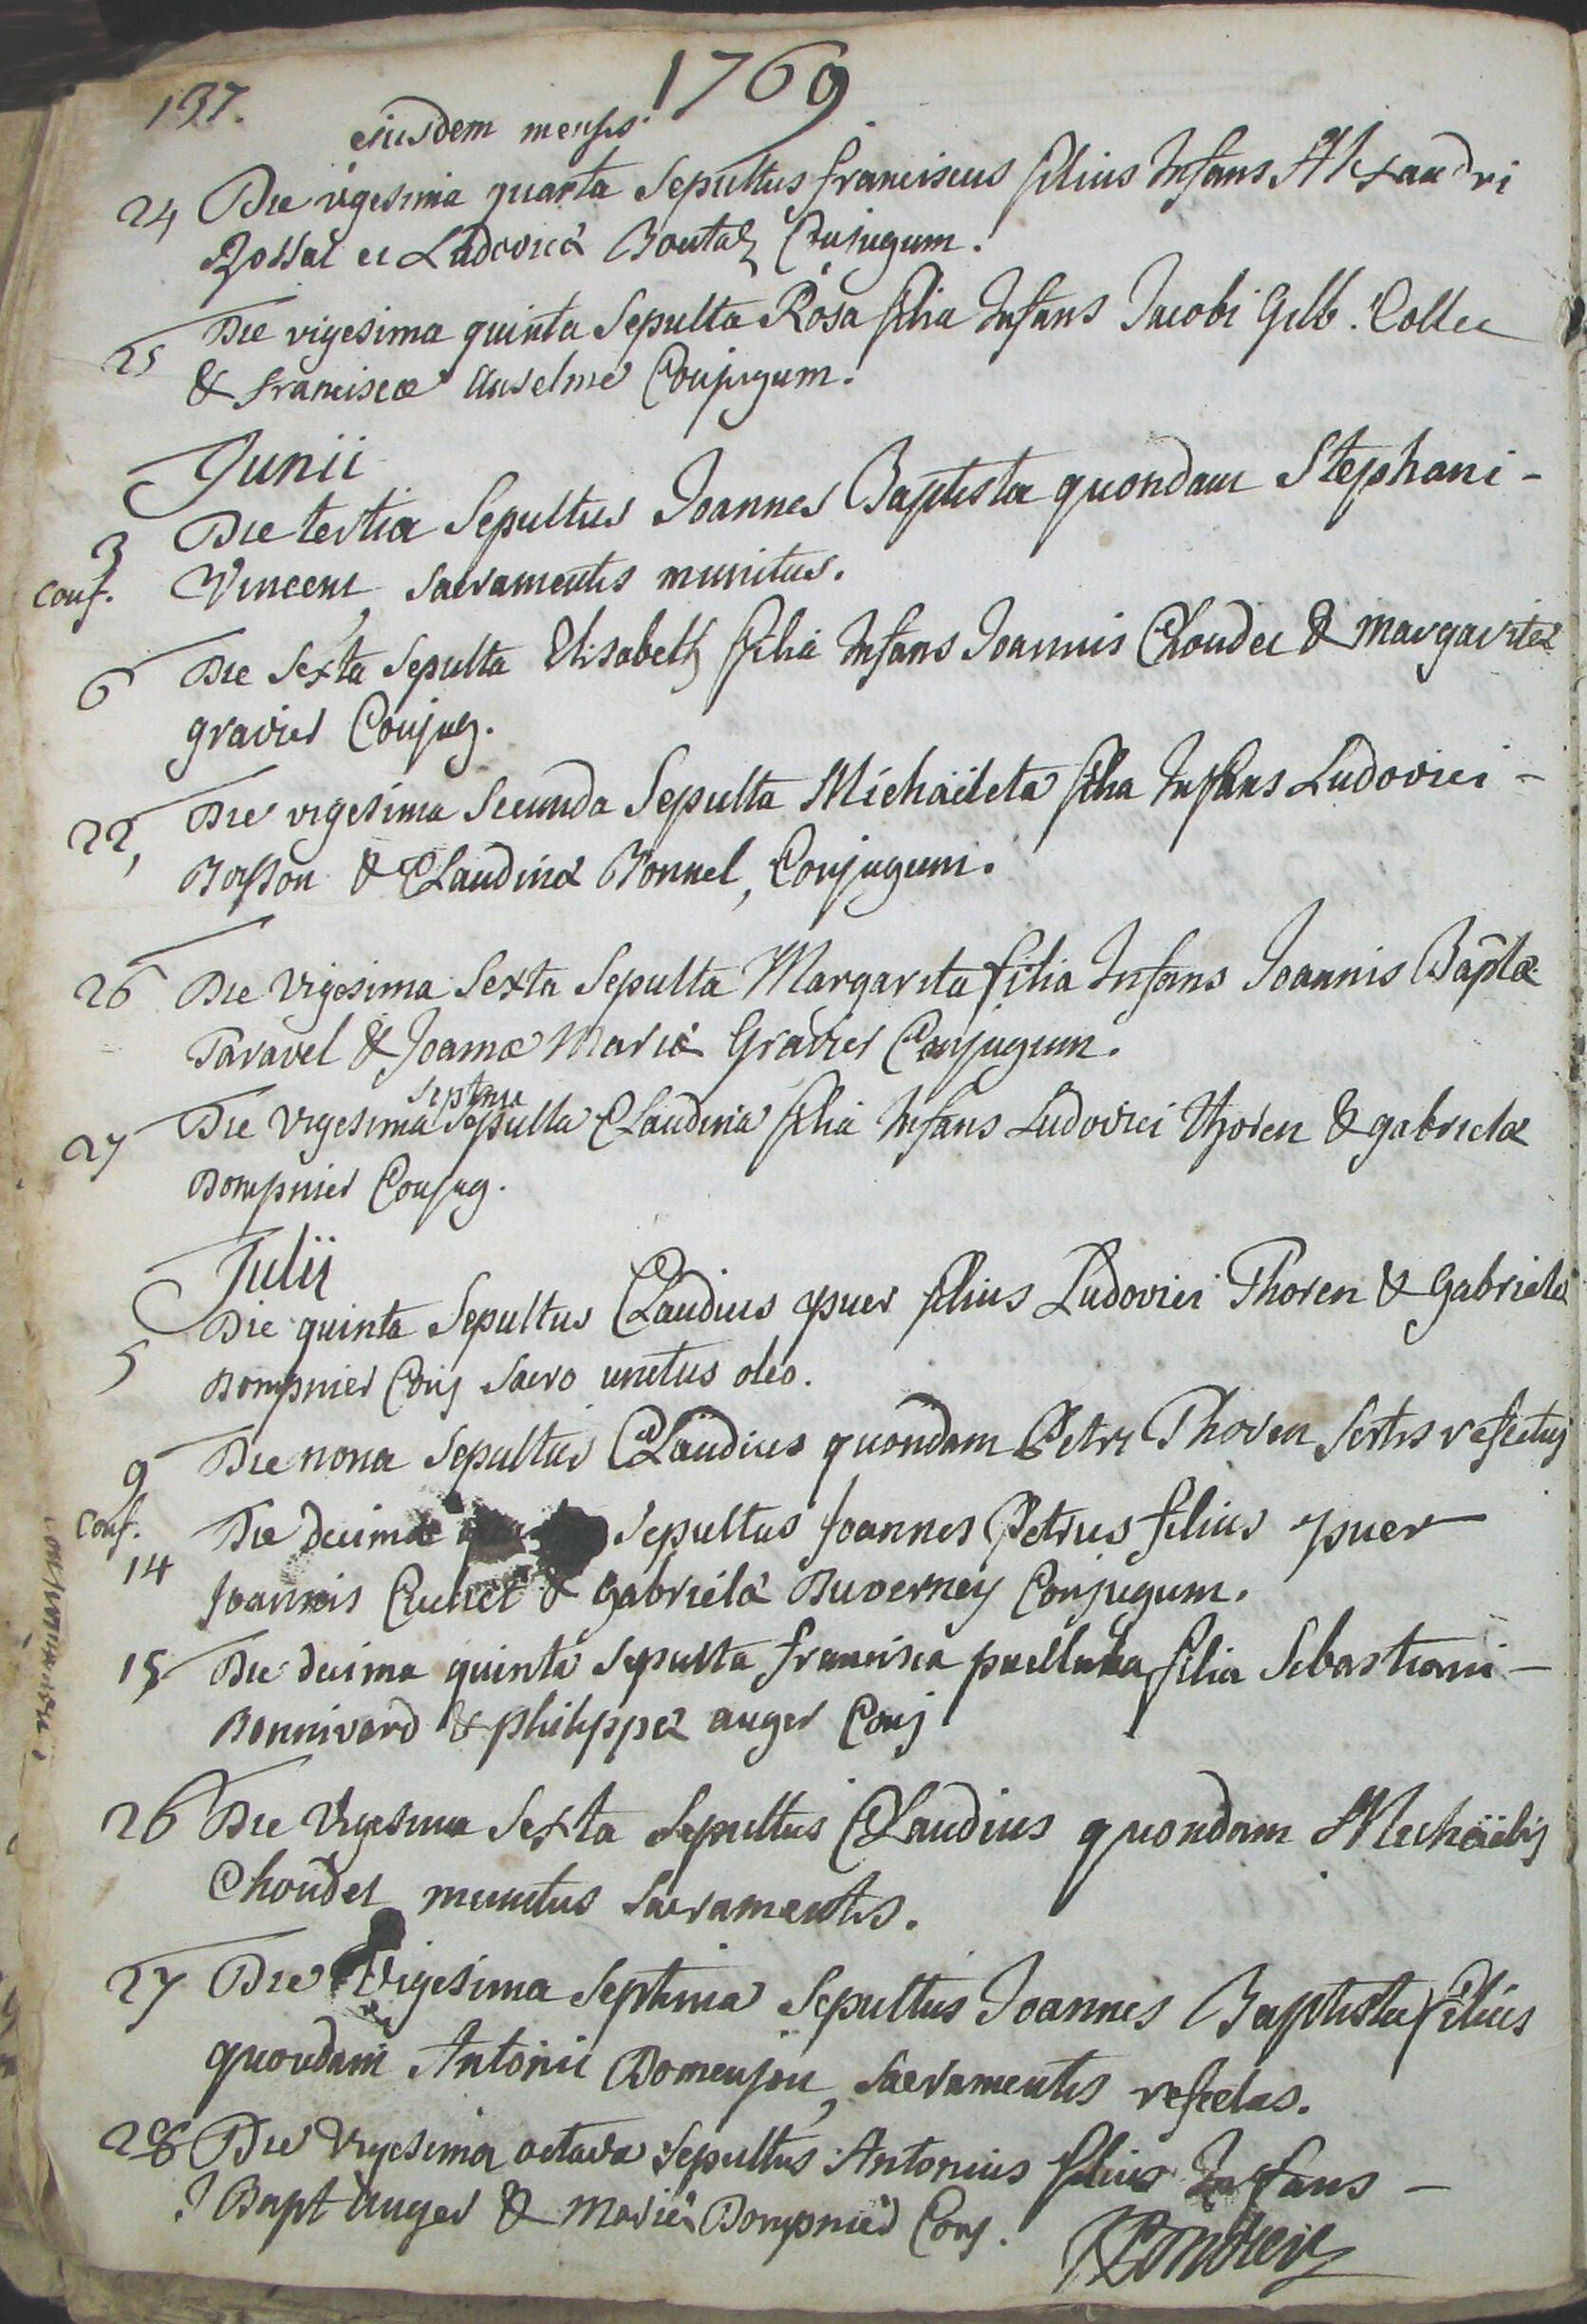 137. 1769
ejusdem mensis
24 Die vigesima quarta Sepultus franciscus filius Infans Alexandri
Rossat et Ludovicæ Boutaz Conjugum.
25 Die vigesima quinta Sepulta Rosa filia Infans Jacobi Gilb. Collet
& franciscæ Anselme Conjugum.
Junii
3 Die tertia Sepultus Joannes Baptista quondam Stephani -
conf. Vincent, sacramentis munitus.
6 Die Sexta Sepulta Elisabeth filia Infans Joannis Choudet & Margaritæ
gravier Conjug.
22, Die vigesima Secunda Sepulta Michaëleta filia Infans Ludovici -
Bosson & Claudinæ Bonnel, Conjugum.
26 Die Vigesima Sexta Sepulta Margarita filia Infans Joannis Baptæ
Taravel & Joannæ Mariæ Gravier Conjugum.
septima
27 Die Vigesima Sepulta Claudina filia Infans Ludovici Thoren & gabrielæ
Dompnier Conjug.
Julii
5 Die quinta Sepultus Claudius puer filius Ludovici Thoren & Gabrielæ
Dompnier Conj Sacro unctus oleo.
9 Die nona Sepultus Claudius quondam Petri Thoren Sctis refectus
conf.
14 Die decima Sepultus Joannes Petrus filius puer
Joannis Cuchet & Gabrielæ Duverney Conjugum.
15 Die decima quinta Sepulta francisca puellula filia Sebastiani -
Bonnivard & philippæ auger Conj
26 Die Vigesima Sexta Sepultus Claudius quondam Michaëlis
Choudet munitus Sacramentis.
27 Die Vigesima Septima Sepultus Joannes Baptista filius
quondam Antonii Domenjou, Sacramentis refectus.
28 Die Vigesima octava Sepultus Antonius filius Infans -
J Bapt Auger & Mariæ Dompnier Conj.